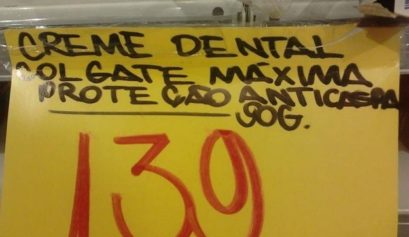 CREME DENTAL
COLGATE MÁXIMA
PROTEÇÃO ANTICASPA
90G.
139